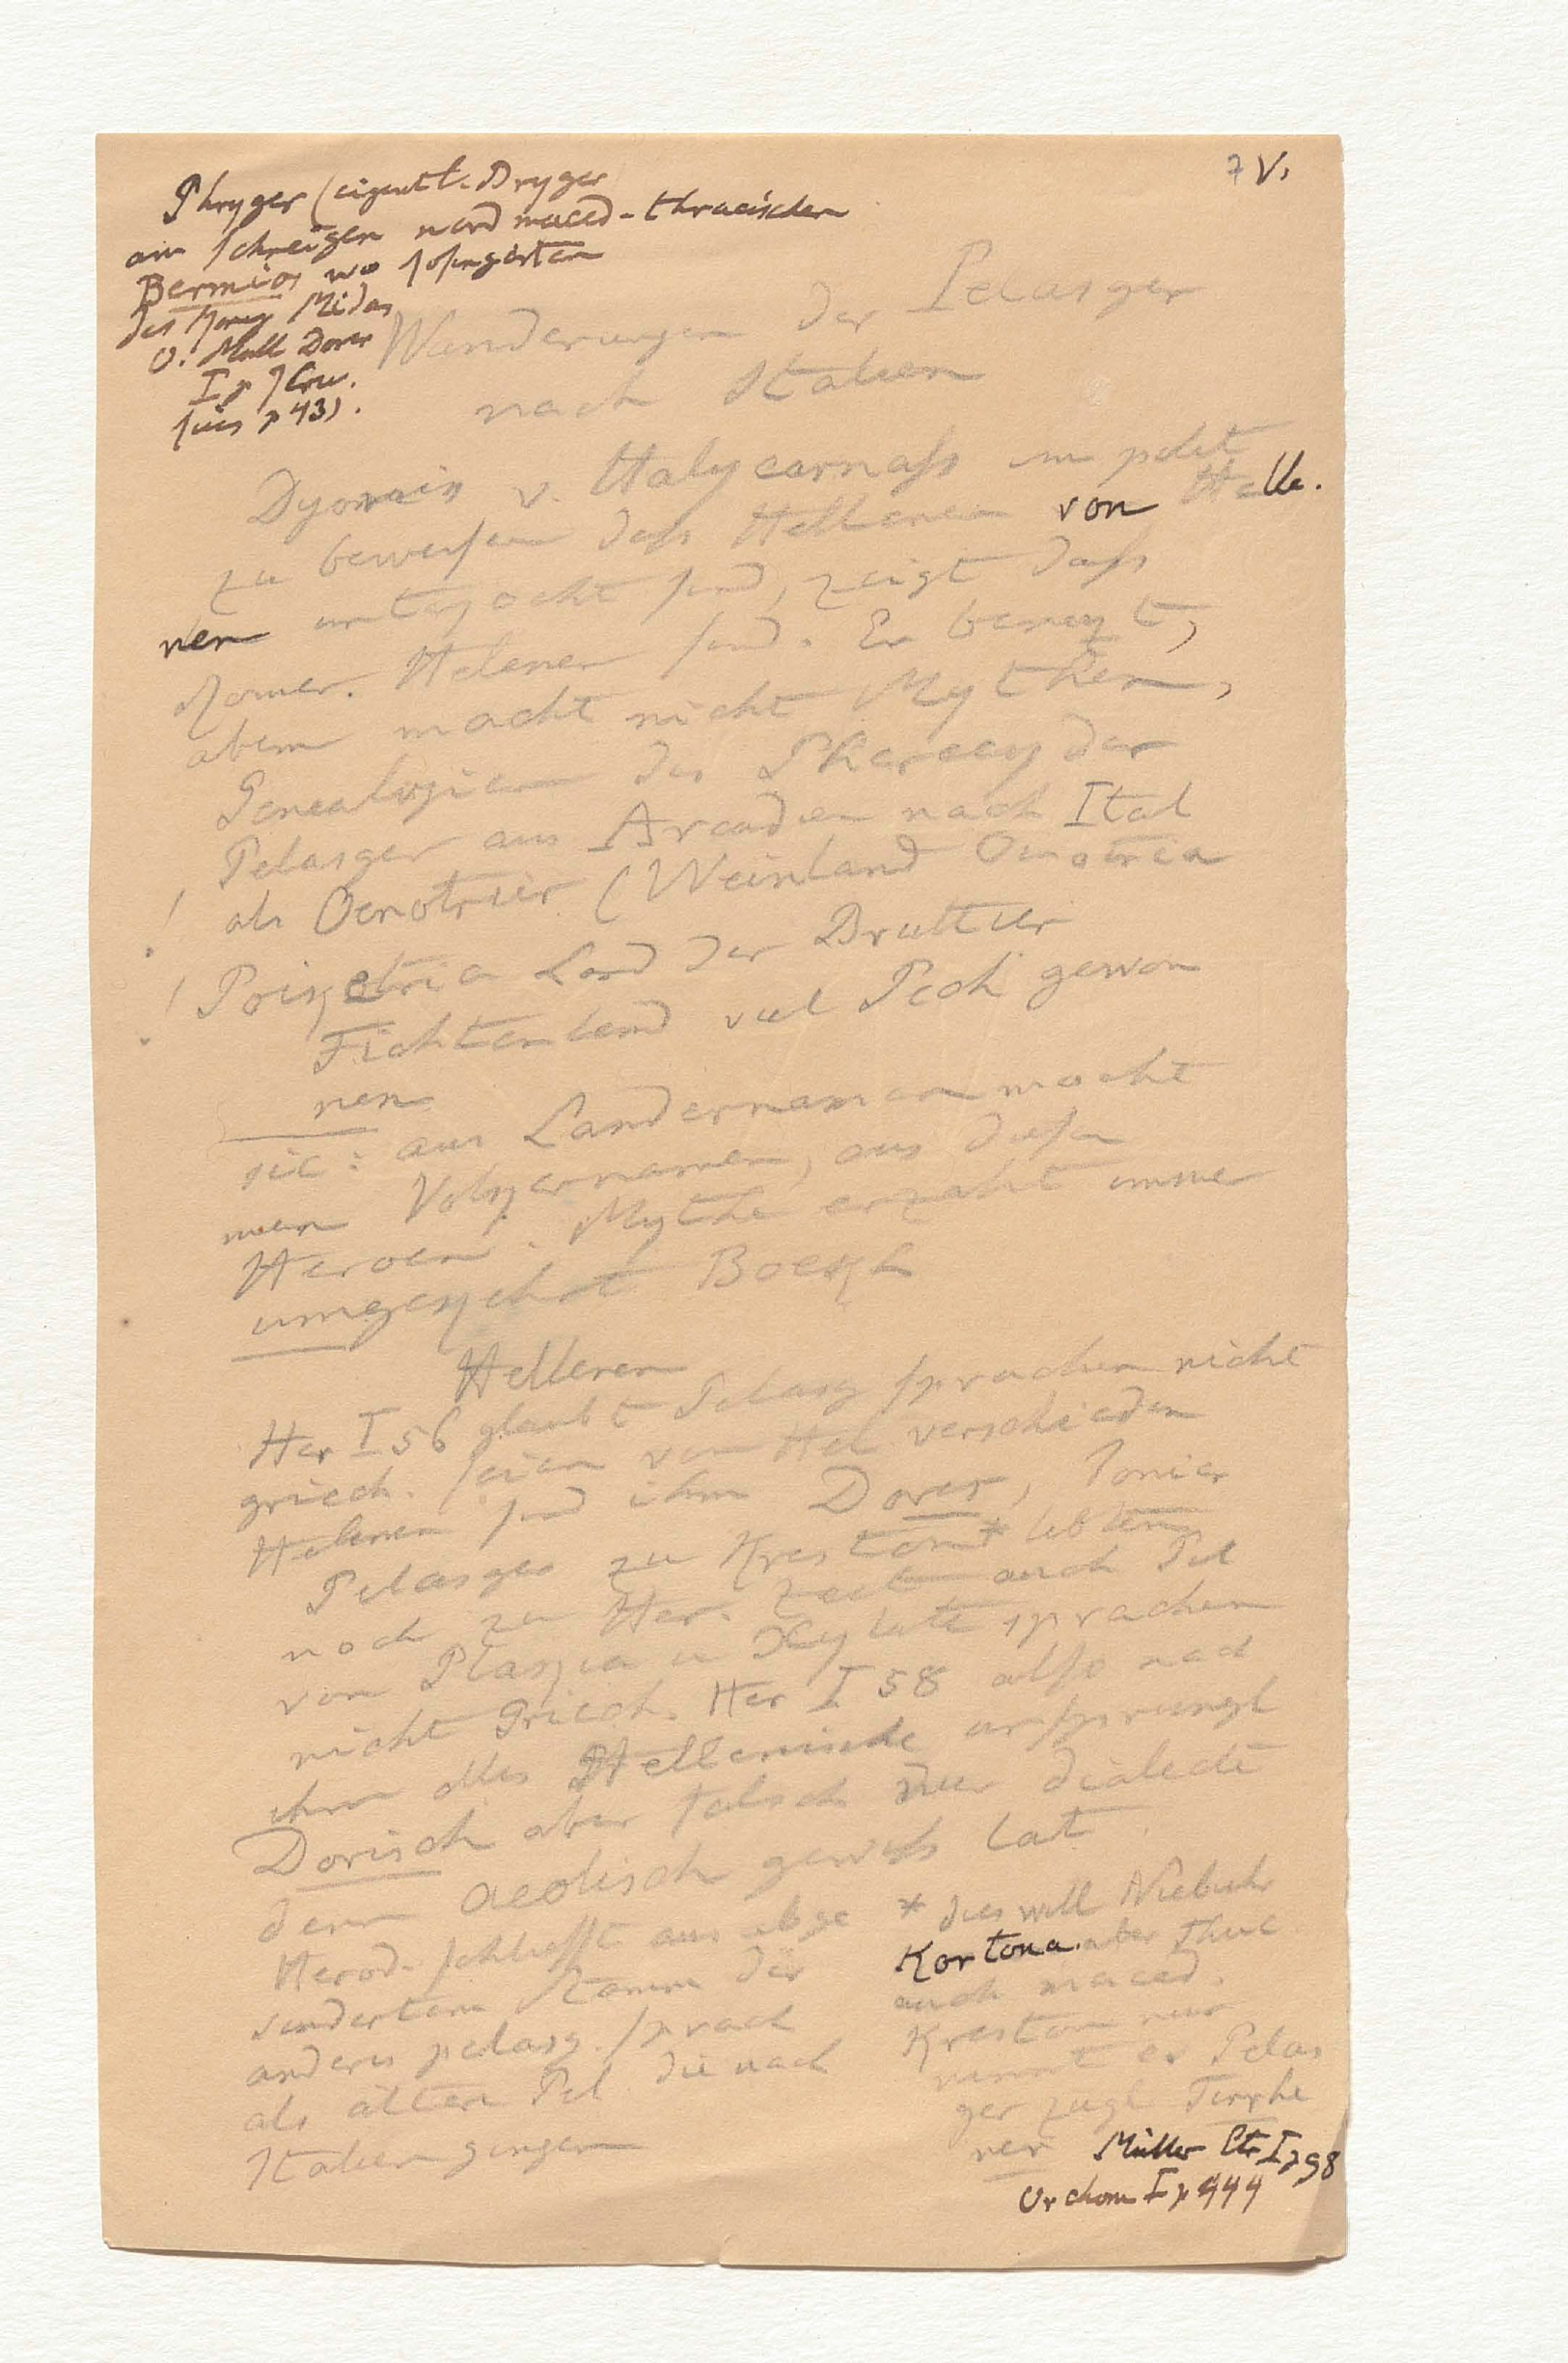 7 V.
Phryger (eigentl. Bryger
am schneigen nord maced-thracischen
Bermios wo Rosengärten
des König Midas
O. Müll Dorer
I p
p 43).
Wanderungen der Pelasger
nach Italien
Dyonis v. Halycarnass um polit
zu beweisen dass Hellenen von Helle.
nen unterjocht sind, zeigt dass
Römer. Helenen sind. Er benuzt,
aber macht nicht Mythen,
Genealogien des Pherecyd der
Pelasger aus Arcadien nach Ital
! als Oenotrier (Weinland Oinotria
! Land der Bruttier
Fichtenland viel Pech gewon
nen
sic: aus Ländernamen macht
man Volkernamen, aus diesen
Heroen. Mythe erzählt immer
umgekehrt Boekh
Hellenen
Her I 56 glaubt Pelasg sprachen nicht
griech. seien von Hel verschieden
Helenen sind ihm Dorer, Ionier
Pelasger zu Kreston* lebten
noch zu Her. Zeit auch Pel
von Plakia u Skylake sprachen
nicht Griech. Her I 58 also nach
ihm alles Hellenische ursprungl
Dorisch aber falsch nur dialecte
denn aeolisch gewiss lat.
Herod. schliesst aus abge
sondertem Stamm der
anders pelasg. sprach
als ältere Pel. die nach
Italien gingen
* dies will Niebuhr
Kortona. aber Thuc
auch maced.
Kreston nur
nennt er Pelas
ger zugl. Tirrhe
ner Müller Etr I p 98
Orchom I p 444